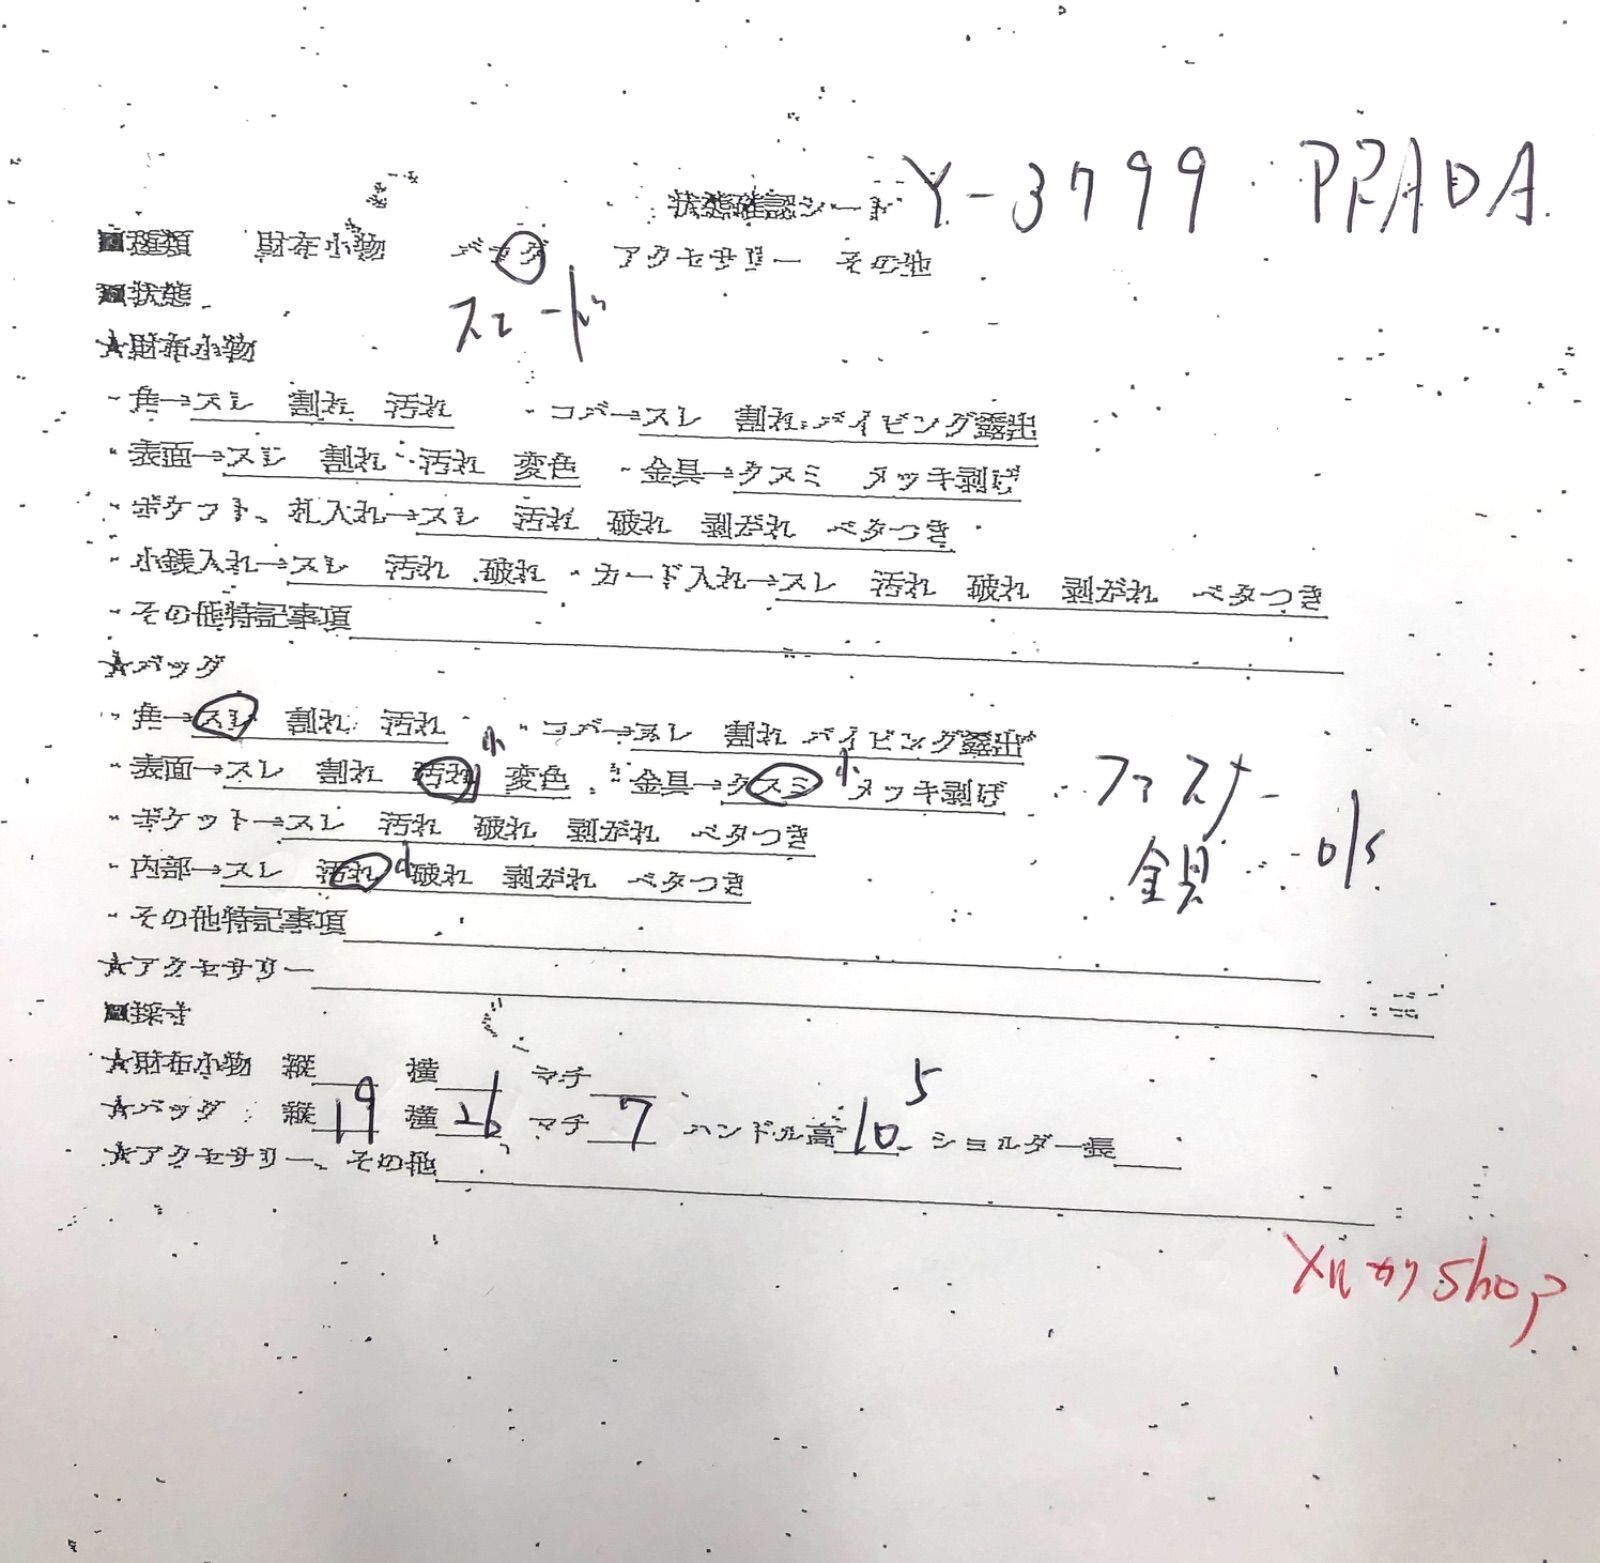 状態確認シート Y-3799 PRADA
■種類 財布小物 バッグ アクセサリー その他
■状態 スエード
★財布小物
・角→スレ 割れ 汚れ ・コバ→スレ 割れ パイピング露出
・表面→スレ 割れ 汚れ 変色 ・金具→クスミ メッキ剥げ
・ポケット、札入れ→スレ 汚れ 破れ 剥がれ ベタつき
・小銭入れ→スレ 汚れ 破れ ・カード入れ→スレ 汚れ 破れ 剥がれ ベタつき
・その他特記事項
★バッグ
・角→スレ 割れ 汚れ ・コバ→スレ 割れ パイピング露出
・表面→スレ 割れ 汚れ 小 変色 ・金具→クスミ 小 メッキ剥げ ファスナー
・ポケット→スレ 汚れ 破れ 剥がれ ベタつき
・内部→スレ 汚れ 小 破れ 剥がれ ベタつき 金具 o/s
・その他特記事項
★アクセサリー
■採寸
★財布小物 縦 横 マチ
★バッグ 縦19 横26 マチ7 ハンドル高10.5 ショルダー長
★アクセサリー、その他
メルカリshop